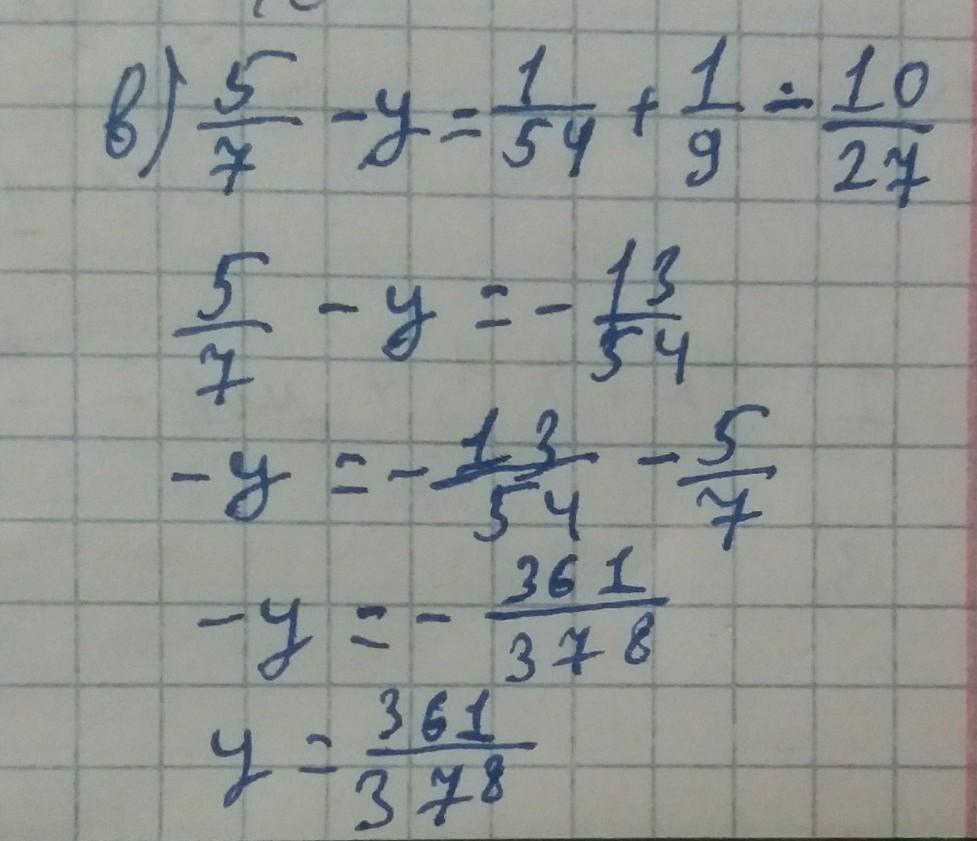 в) 5/7 - y = 1/54 + 1/9 - 10/27
5/7 - y = - 13/54
- y = - 13/54 - 5/7
- y = - 361/378
y = 361/378